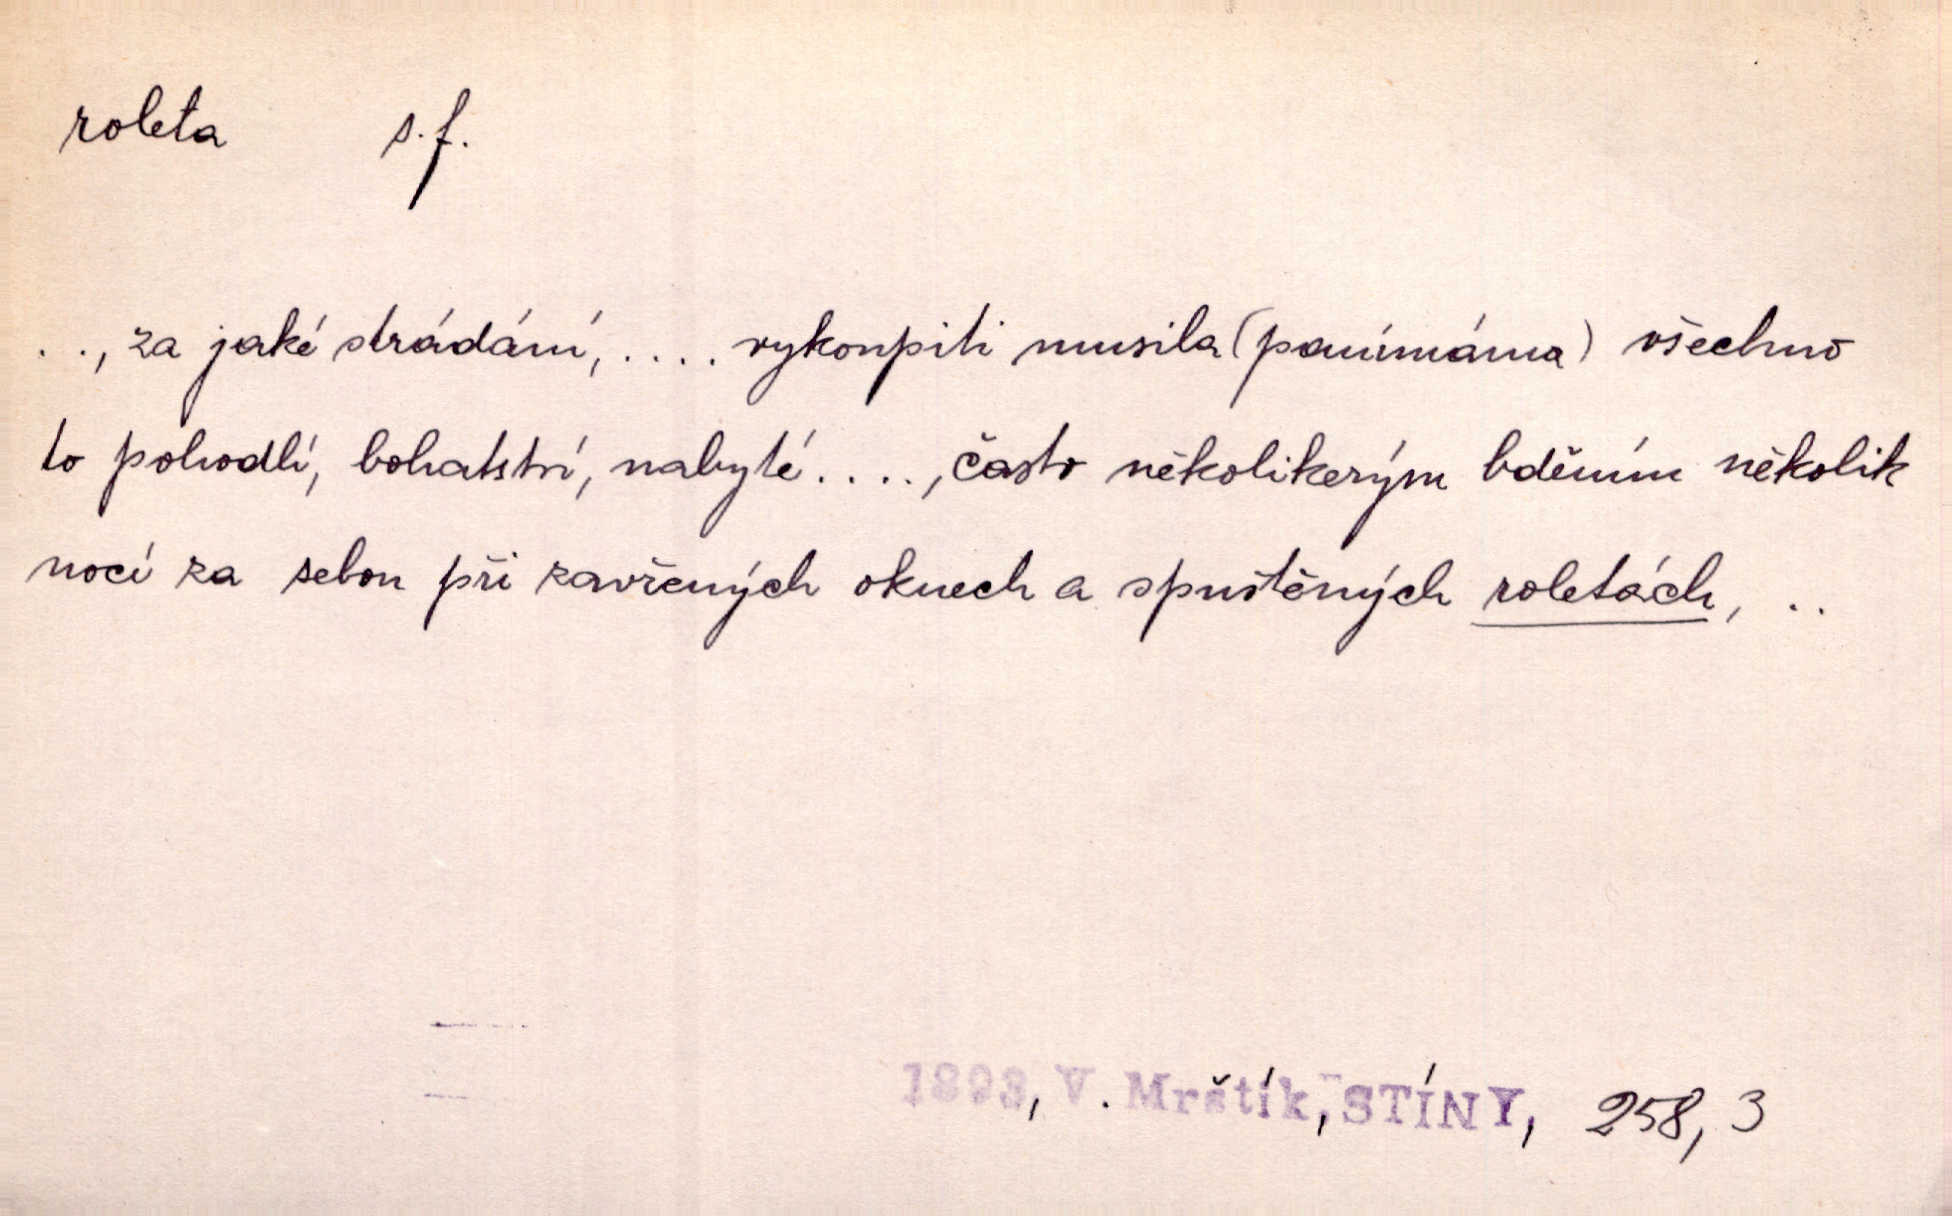 roleta s.f.
. ., za jaké strádání, . . . . vykoupiti musila (panímáma) všechno
to pohodlí, bohatství, nabyté . . . . , často několikerým bděním několik
nocí za sebou při zavřených oknech a spuštěných roletách, . .
1893, V. Mrštík, STÍNY, 258, 3